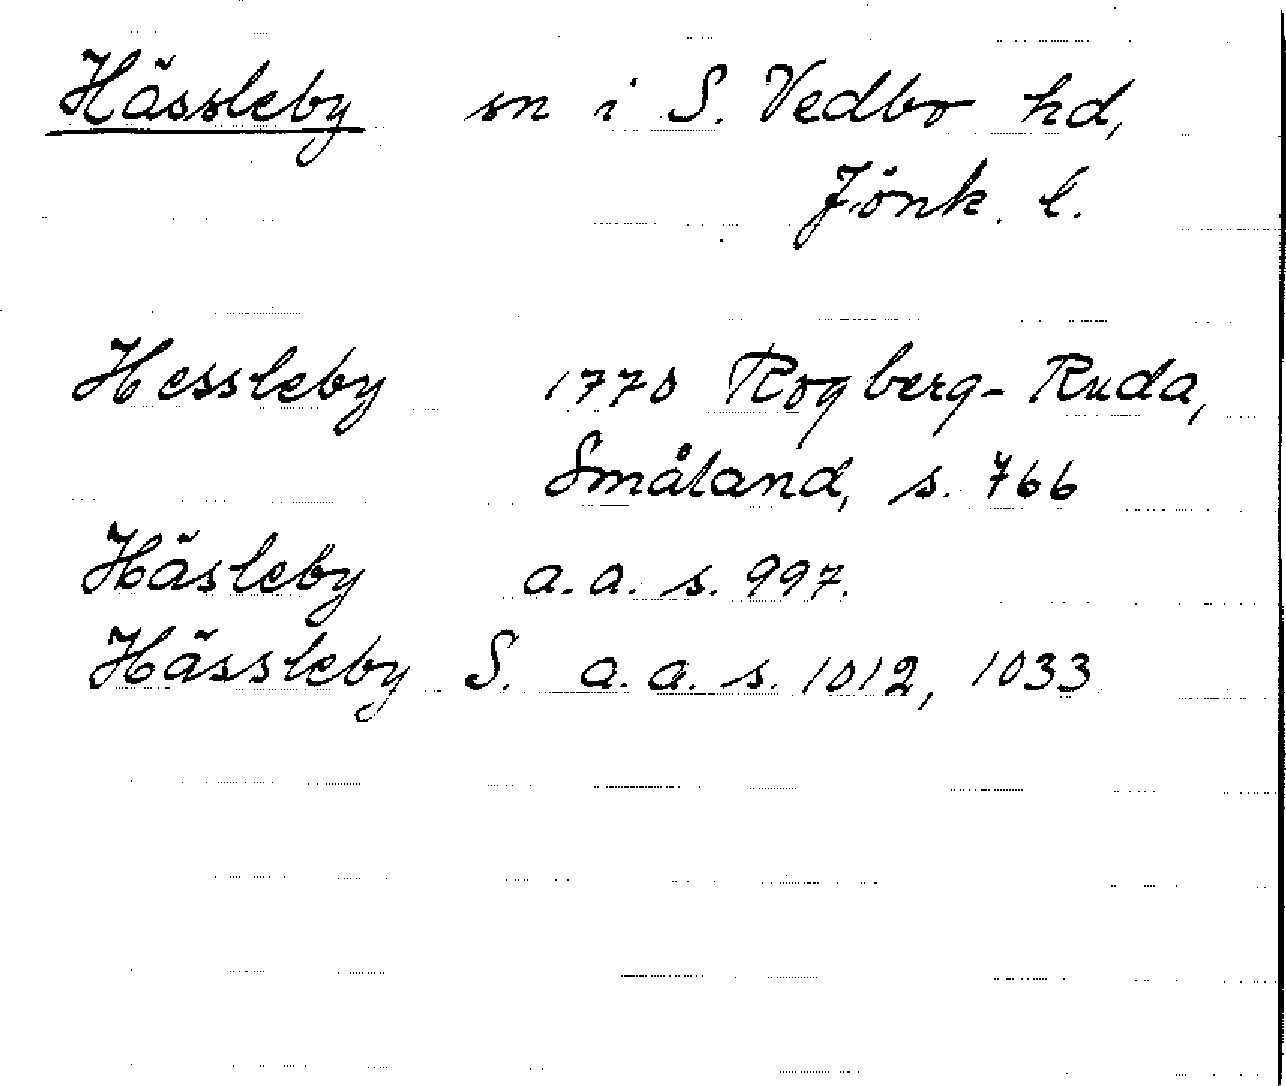 Hässleby sn i S. Vedbo hd,
Jönk. l.
Hessleby 1770 Rogberg-Ruda,
Småland, s. 766
Häsleby a.a. s. 997.
Hässleby S. a.a. s. 1012, 1033